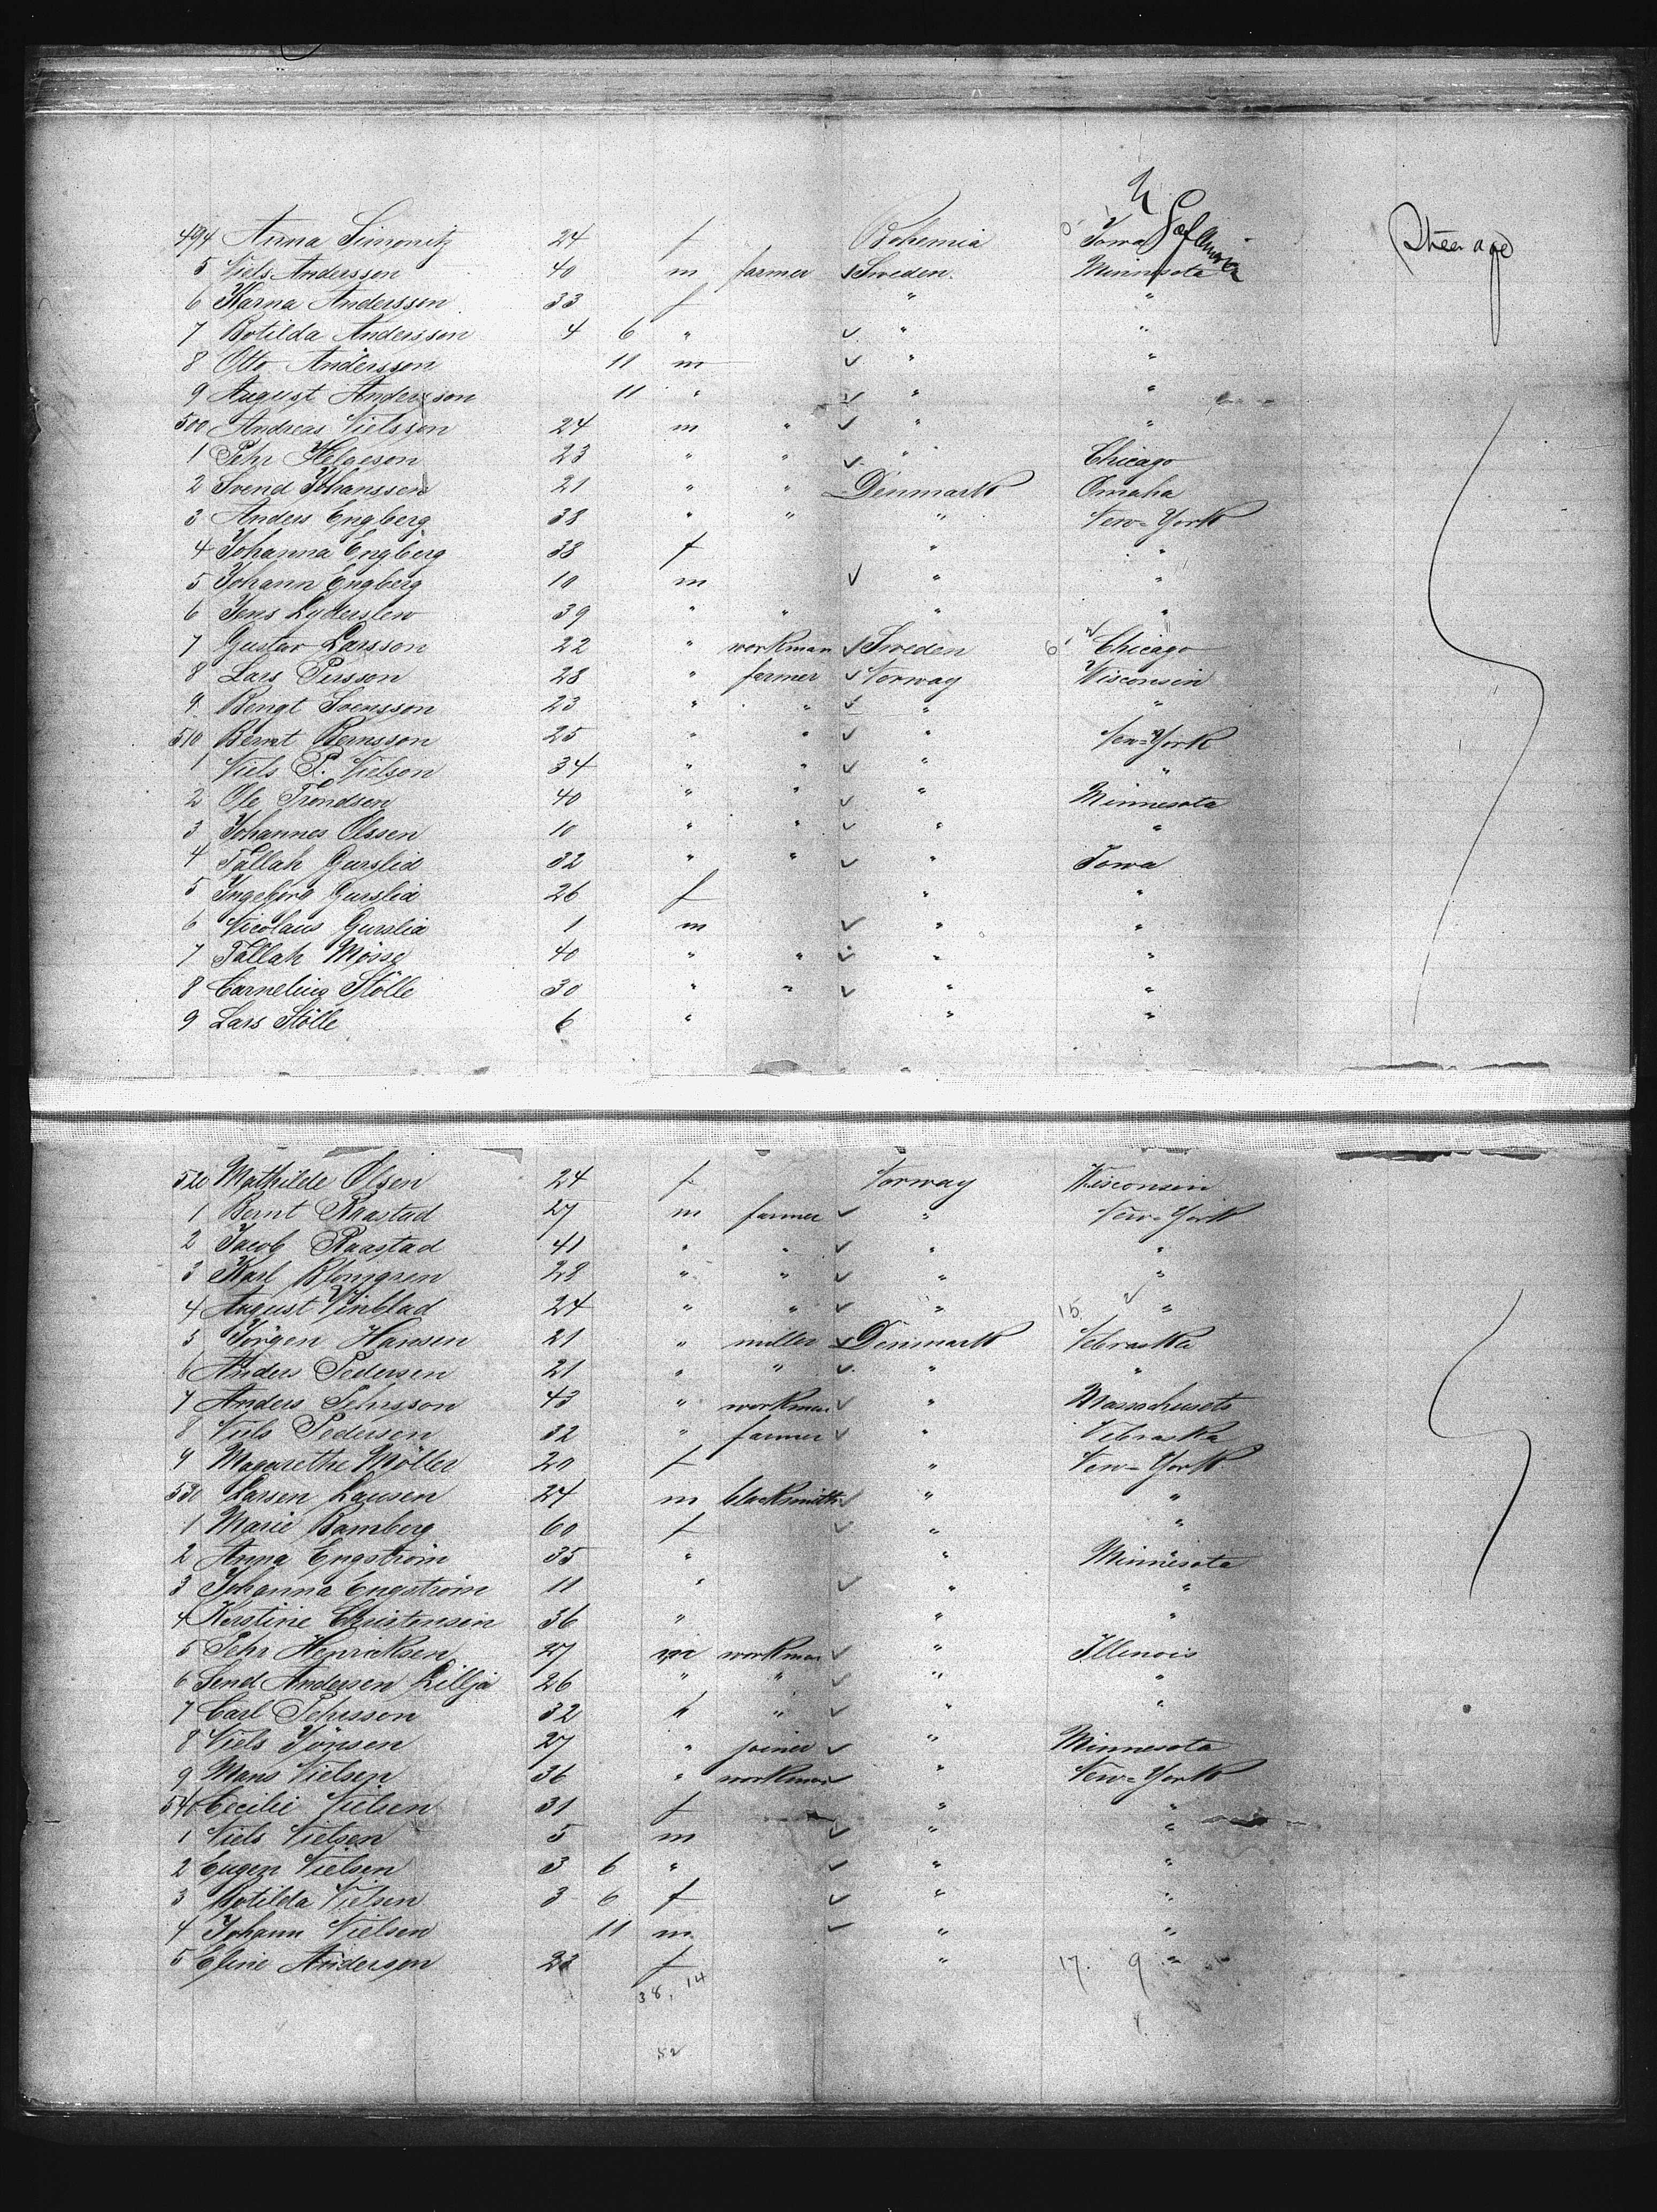 494 Anna Simonitz 24 f Bohemia Iowa Steerage
5 Niels Andersson 40 m farmer √ Sweden Minnesota
6 Karna Andersson 33 f " "
7 Botilda Andersson 4 6 " √ " "
8 Otto Andersson 11 m √ " "
9 August Andersson 11 " √ " "
500 Andreas Nielsson 24 m " √ " "
1 Pehr Helgeson 23 " " √ " Chicago
2 Svend Johanssen 21 " " Denmark Omaha
3 Anders Engberg 38 " " " New-York
4 Johanna Engberg 38 f " "
5 Johann Engberg 10 m √ " "
6 Jens 39 " " " "
7 Gustav Larsson 22 " workman √ Sweden Chicago
8 Lars Persson 28 " farmer √ Norway Wisconsin
9 Bengt Svensson 23 " " √ " "
510 Bernt Bernsson 25 " " √ " New-York
1 Niels P. Nielson 34 " " √ " "
2 Ole Trondsen 40 " " √ " Minnesota
3 Johannes Olssen 10 " " √ " "
4 Tallah Gurslid 32 " " √ " Iowa
5 Ingeborg Gurslid 26 f " "
6 Nicolaus Gurslid 1 m √ " "
7 Tallah Mosse 40 " " √ " "
8 Carnelius Stölle 30 " " √ " "
9 Lars Stölle 6 " " "
520 Mathilde Olsen 24 f Norway Wisconsin
1 Bernt Raastad 27 m farmer √ " New-York
2 Jacob Raastad 41 " " √ " "
3 Karl Blomgren 28 " " √ " "
4 August Vinblad 24 " " √ " 15 "
5 Jörgen Hansen 21 " miller √ Denmark Nebraska
6 Anders Pedersen 21 " " √ " "
7 Anders Pehrsson 43 " workman √ " Massachusets
8 Niels Pedersen 32 " farmer √ " Nebraska
9 Magarethe Möller 20 f " New-York
530 Larsen Lausen 24 m blacksmith √ " "
1 Marie Bamberg 60 f √ " "
2 Anna Engström 35 " " Minnesota
3 Johanna Engström 11 " √ " "
4 Kerstine Christensen 36 " " "
5 Pehr Henricksen 27 m workman √ " Illinois
6 Send Andersen Lillja 26 " " √ " "
7 Carl Pehrsson 32 " " √ " "
8 Niels Jönsen 27 " joiner √ " Minnesota
9 Mans Nielsen 36 " workman √ " New-York
540 Cecilie Nielsen 31 f " "
1 Niels Nielsen 5 m √ " "
2 Eugen Nielsen 3 6 " √ " "
3 Botilda Nielsen 3 6 f √ " "
4 Johann Nielsen 11 m √ " "
5 Eline Anderson 23 f " 17. 9 "
38, 14
52